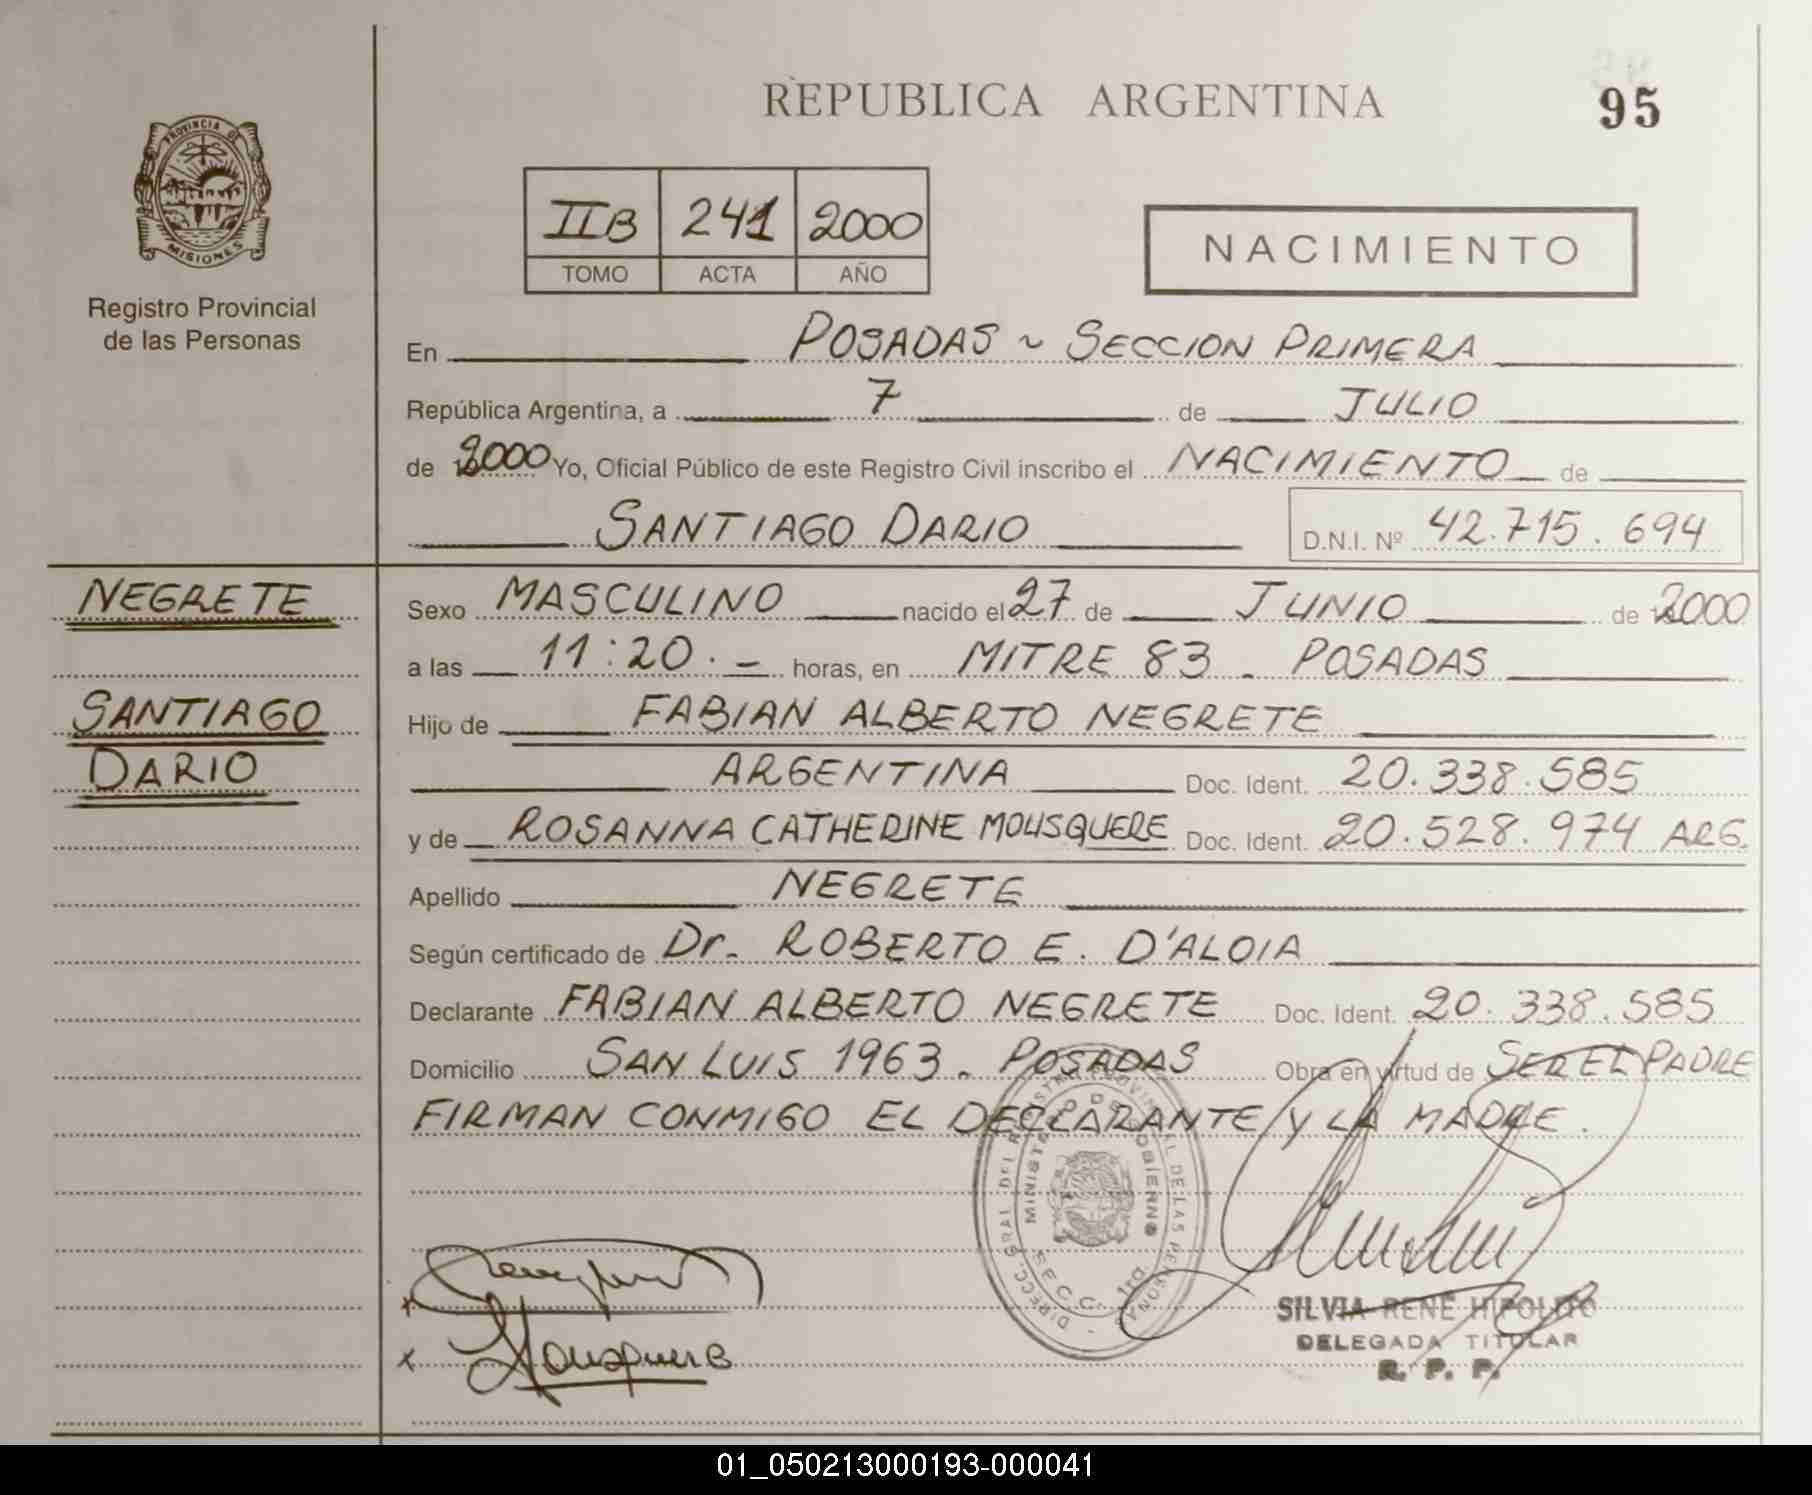 REPUBLICA ARGENTINA
95
PROVINCIA DE MISIONES
Registro Provincial
de las Personas
IIB 241 2000
TOMO ACTA AÑO
NACIMIENTO
En POSADAS ~ SECCION PRIMERA
República Argentina, a 7 de JULIO
de 2000 Yo, Oficial Público de este Registro Civil inscribo el NACIMIENTO de
SANTIAGO DARIO D.N.I. Nº 42.715.694
NEGRETE
SANTIAGO
DARIO
Sexo MASCULINO nacido el 27 de JUNIO de 2000
a las 11:20.- horas, en MITRE 83 - POSADAS
Hijo de FABIAN ALBERTO NEGRETE
ARGENTINA Doc. Ident. 20.338.585
y de ROSANNA CATHERINE MOUSQUERE Doc. Ident. 20.528.974 ARG.
Apellido NEGRETE
Según certificado de Dr. ROBERTO E. D'ALOIA
Declarante FABIAN ALBERTO NEGRETE Doc. Ident. 20.338.585
Domicilio SAN LUIS 1963. POSADAS Obra en virtud de SER EL PADRE
FIRMAN CONMIGO EL DECLARANTE Y LA MADRE.
DIRECC. GRAL. DEL REGISTRO PROVINCIAL DE LAS PERSONAS
MINISTERIO DE GOBIERNO
SECC. 1ra.
x
x Mousquere
SILVIA RENE HIPOLITO
DELEGADA TITULAR
R. P. P.
01_050213000193-000041